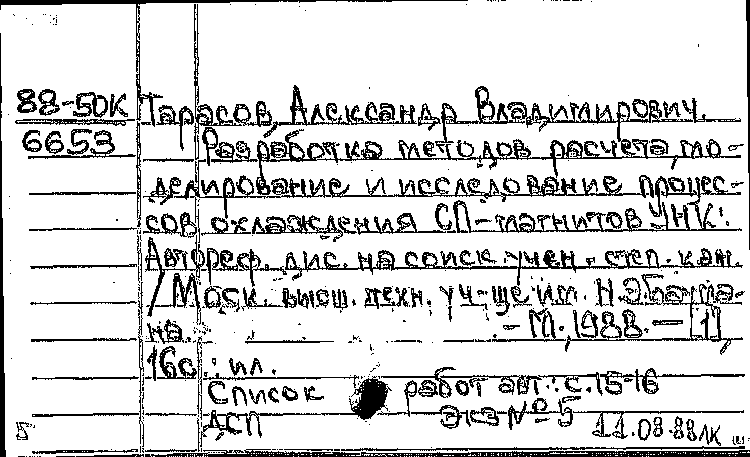 88-50К Тарасов, Александр Владимирович.
6653 Разработка методов расчета, мо-
делирование и исследование процес-
сов охлаждения СП-магнитов УНК:
Автореф. дис. на соиск. учен. степ. кан.
/Моск. высш. техн. уч-ще им. Н.Э.Баума-
на. - М., 1988. - [1],
16с.: ил.
Список работ авт.: с.15-16
ДСП Экз № 5 11.08.88ЛК